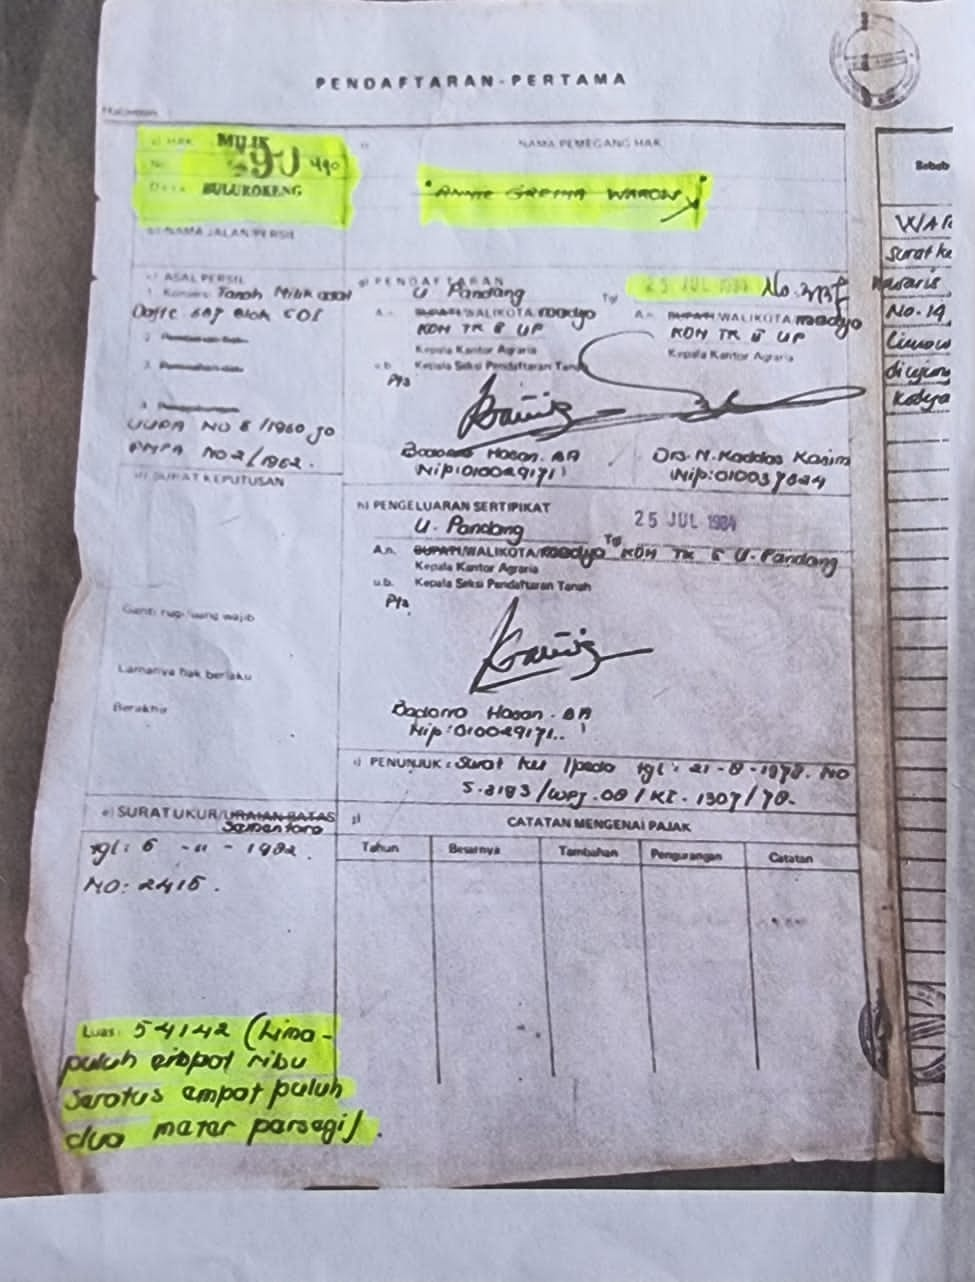 PENDAFTARAN - PERTAMA
a) HAK MILIK
No. 490
Desa BULUROKENG
NAMA PEMEGANG HAK
ANNIE GRETHA WARON
b) NAMA JALAN PERSIL
c) ASAL PERSIL
1. Konversi Tanah Milik adat
UUPA NO 5 /1960 jo
PMPA NO 2/1962.
d) SURAT KEPUTUSAN
Ganti rugi/uang wajib
Lamanya hak berlaku
Berakhir
e) SURAT UKUR/URAIAN BATAS
Sementara
tgl: 6 - 11 - 1982.
NO: 2415.
Luas: 54142 (Lima-
puluh empat ribu
seratus empat puluh
dua meter persegi).
g) PENDAFTARAN
U Pandang
Tgl 25 JUL 1984
A.n. BUPATI/WALIKOTA/madya
KDH TK II UP
Kepala Kantor Agraria
u.b. Kepala Seksi Pendaftaran Tanah
Hasan. BA
Nip:010029171
A.n. BUPATI/WALIKOTA/madya
KDH TK II UP
Kepala Kantor Agraria
Drs. N. Kaddas Karim
h) PENGELUARAN SERTIPIKAT
U. Pandang Tgl 25 JUL 1984
A.n. BUPATI/WALIKOTA/madya KDH TK II U. Pandang
Kepala Kantor Agraria
u.b. Kepala Seksi Pendaftaran Tanah
Hasan. BA
Nip:010029171
i) PENUNJUK : Surat Ket Ipeda tgl: 21-8-1978. NO
S.3183/WPJ.08/KI-1307/78.
j) CATATAN MENGENAI PAJAK
Tahun Besarnya Tambahan Pengurangan Catatan
Sebab
surat ke
No. 14